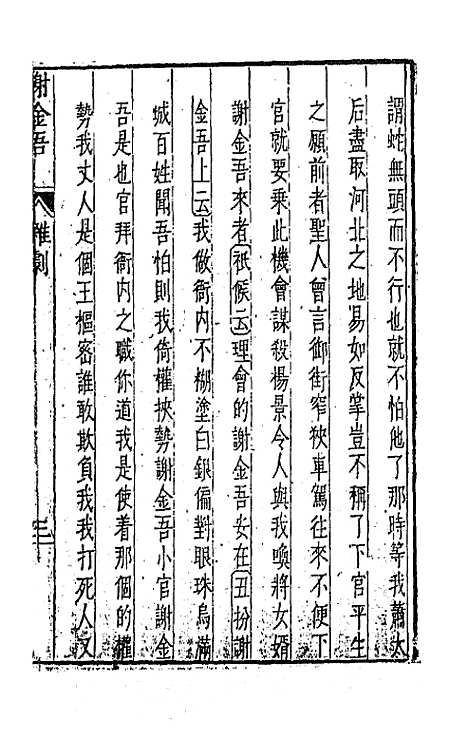 謂蛇無頭而不行也就不怕他了那時等我蕭太
后盡取河北之地易如反掌豈不稱了下官平生
之願前者聖人曾言御街窄狹車駕往來不便下
官就要乘此機會謀殺楊景令人與我喚將女婿
謝金吾來者祇候云理會的謝金吾安在丑扮謝
金吾上云我做衙內不糊塗白銀偏對眼珠烏滿
城百姓聞吾怕則我倚權挾勢謝金吾小官謝金
吾是也官拜衙內之職你道我是使着那個的權
勢我丈人是個王樞密誰敢欺負我我打死人又
謝金吾 雜劇 三